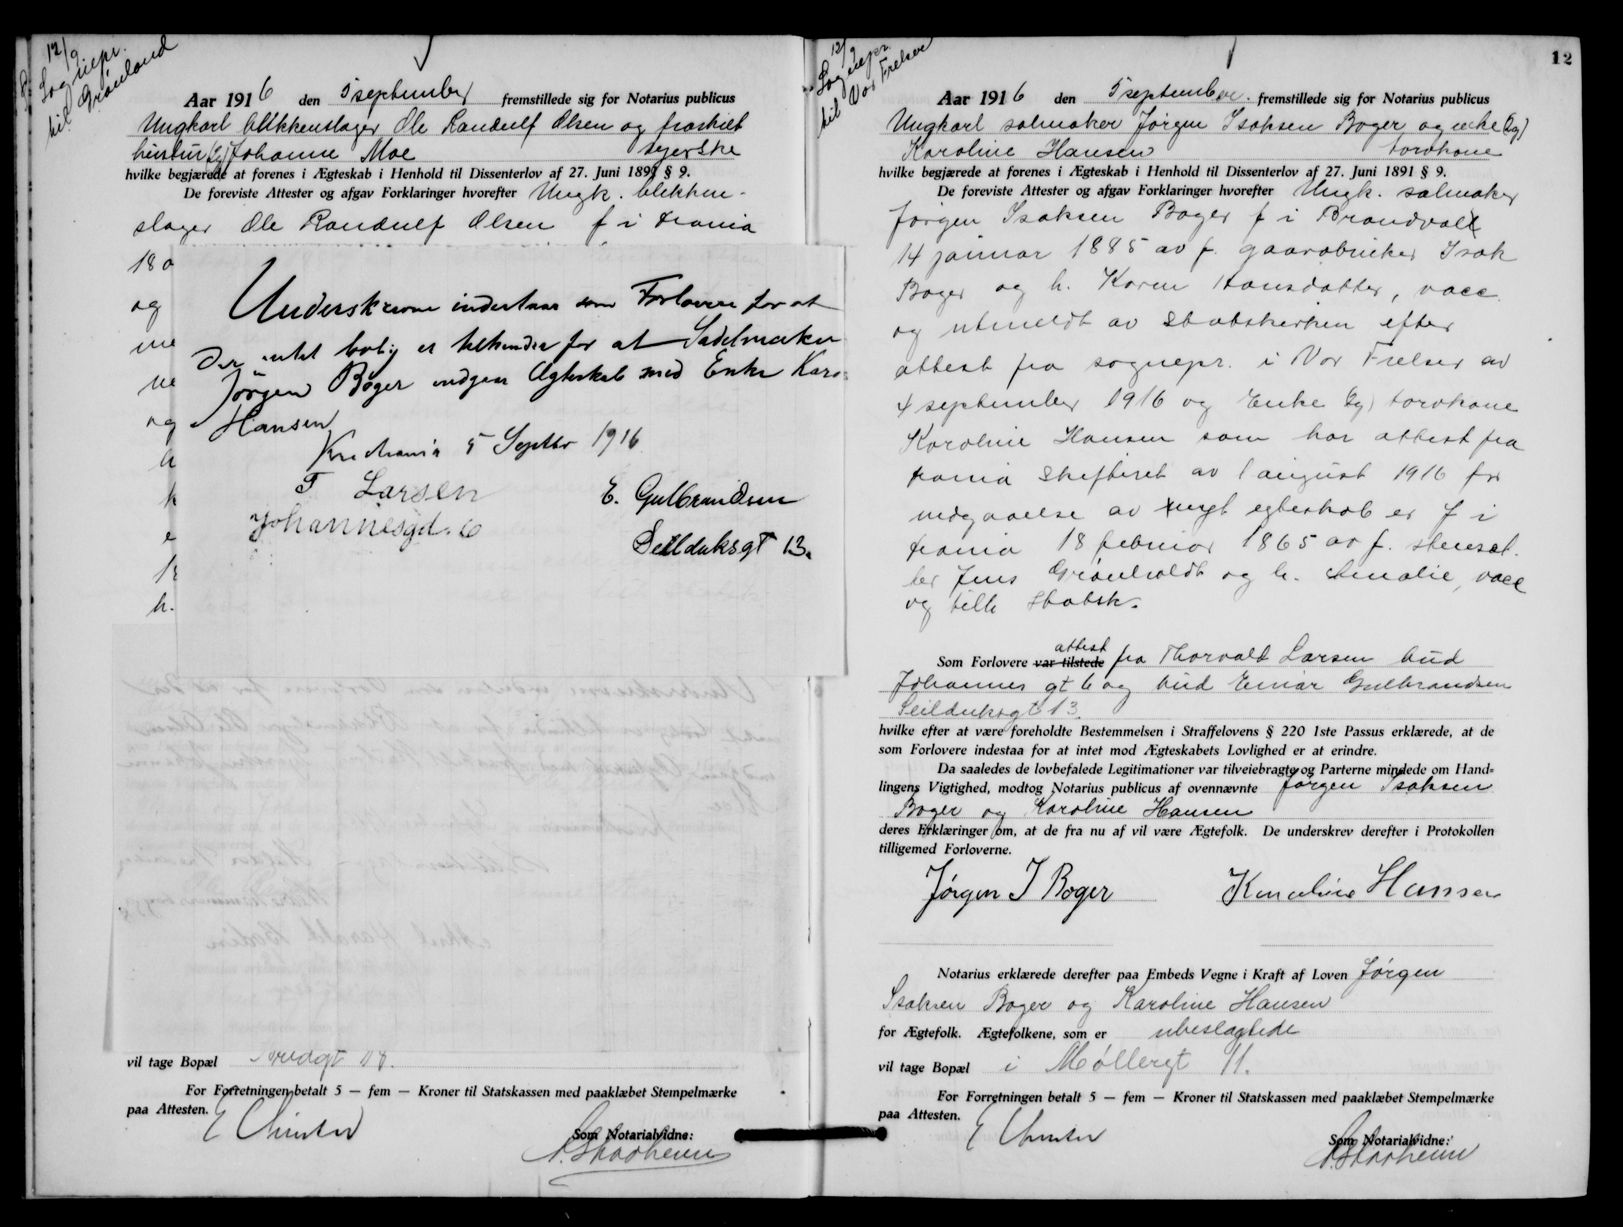 12/9
Sognepr.
til Grønland
Aar 1916 den 5 september fremstillede sig for Notarius publicus
Ungkarl blikkenslager Ole Randulf Olsen og fraskilt
hustru (sg) Johanne Moe syerske
hvilke begjærede at forenes i Ægteskab i Henhold til Dissenterlov af 27. Juni 1891 § 9.
De foreviste Attester og afgav Forklaringer hvorefter Ungk. blikken-
slager Ole Randulf Olsen f i Krania
18
og
og
h.
Underskrevne indestaar som Forlovere for at
der intet lovlig er tilhinder for at Sadelmaker
Jörgen Böger indgaar Ægteskab med Enke Karo
Hansen
Kristiania 5 Septbr 1916
T. Larsen E. Gulbrandsen
Johannesgd. 6
Seilduksgt 13.
vil tage Bopæl
For Forretningen betalt 5 — fem — Kroner til Statskassen med paaklæbet Stempelmærke
paa Attesten.
Som Notarialvidne:
12/9
Sognepr.
til Vor Frelser
12
Aar 1916 den 5 september fremstillede sig for Notarius publicus
Ungkarl salmaker Jørgen Isaksen Boger og enke (sg)
Karoline Hansen torvkone
hvilke begjærede at forenes i Ægteskab i Henhold til Dissenterlov af 27. Juni 1891 § 9.
De foreviste Attester og afgav Forklaringer hvorefter Ungk. salmaker
Jørgen Isaksen Boger f i Brandval
14 januar 1885 av f. gaardbruker Isak
Boger og h. Karen Hansdatter, vacc.
og utmeldt av Statskirken efter
attest fra sognepr. i Vor Frelser av
4 september 1916 og Enke (sg) torvkone
Karoline Hansen som har attest fra
Krania Skifteret av 1 august 1916 for
indgaaelse av nyt egteskab er f i
Krania 18 februar 1865 av f. stenset-
ter Jens Grönholdt og h. Amalie, vacc
og tilh Statsk.
Som Forlovere var tilstede attest fra Thorvald Larsen bud
Johannes gt 6 og bud Einar Gulbrandsen
Seilduksgt 13.
hvilke efter at være foreholdte Bestemmelsen i Straffelovens § 220 1ste Passus erklærede, at de
som Forlovere indestaa for at intet mod Ægteskabets Lovlighed er at erindre.
Da saaledes de lovbefalede Legitimationer var tilveiebragte og Parterne mindede om Hand-
lingens Vigtighed, modtog Notarius publicus af ovennævnte Jørgen Isaksen
Boger og Karoline Hansen
deres Erklæringer om, at de fra nu af vil være Ægtefolk. De underskrev derefter i Protokollen
tilligemed Forloverne.
Jørgen I Boger Karoline Hansen
Notarius erklærede derefter paa Embeds Vegne i Kraft af Loven Jørgen
Isaksen Boger og Karoline Hansen
for Ægtefolk. Ægtefolkene, som er ubeslagtede
vil tage Bopæl i Møllergt 11.
For Forretningen betalt 5 — fem — Kroner til Statskassen med paaklæbet Stempelmærke
paa Attesten.
Som Notarialvidne: